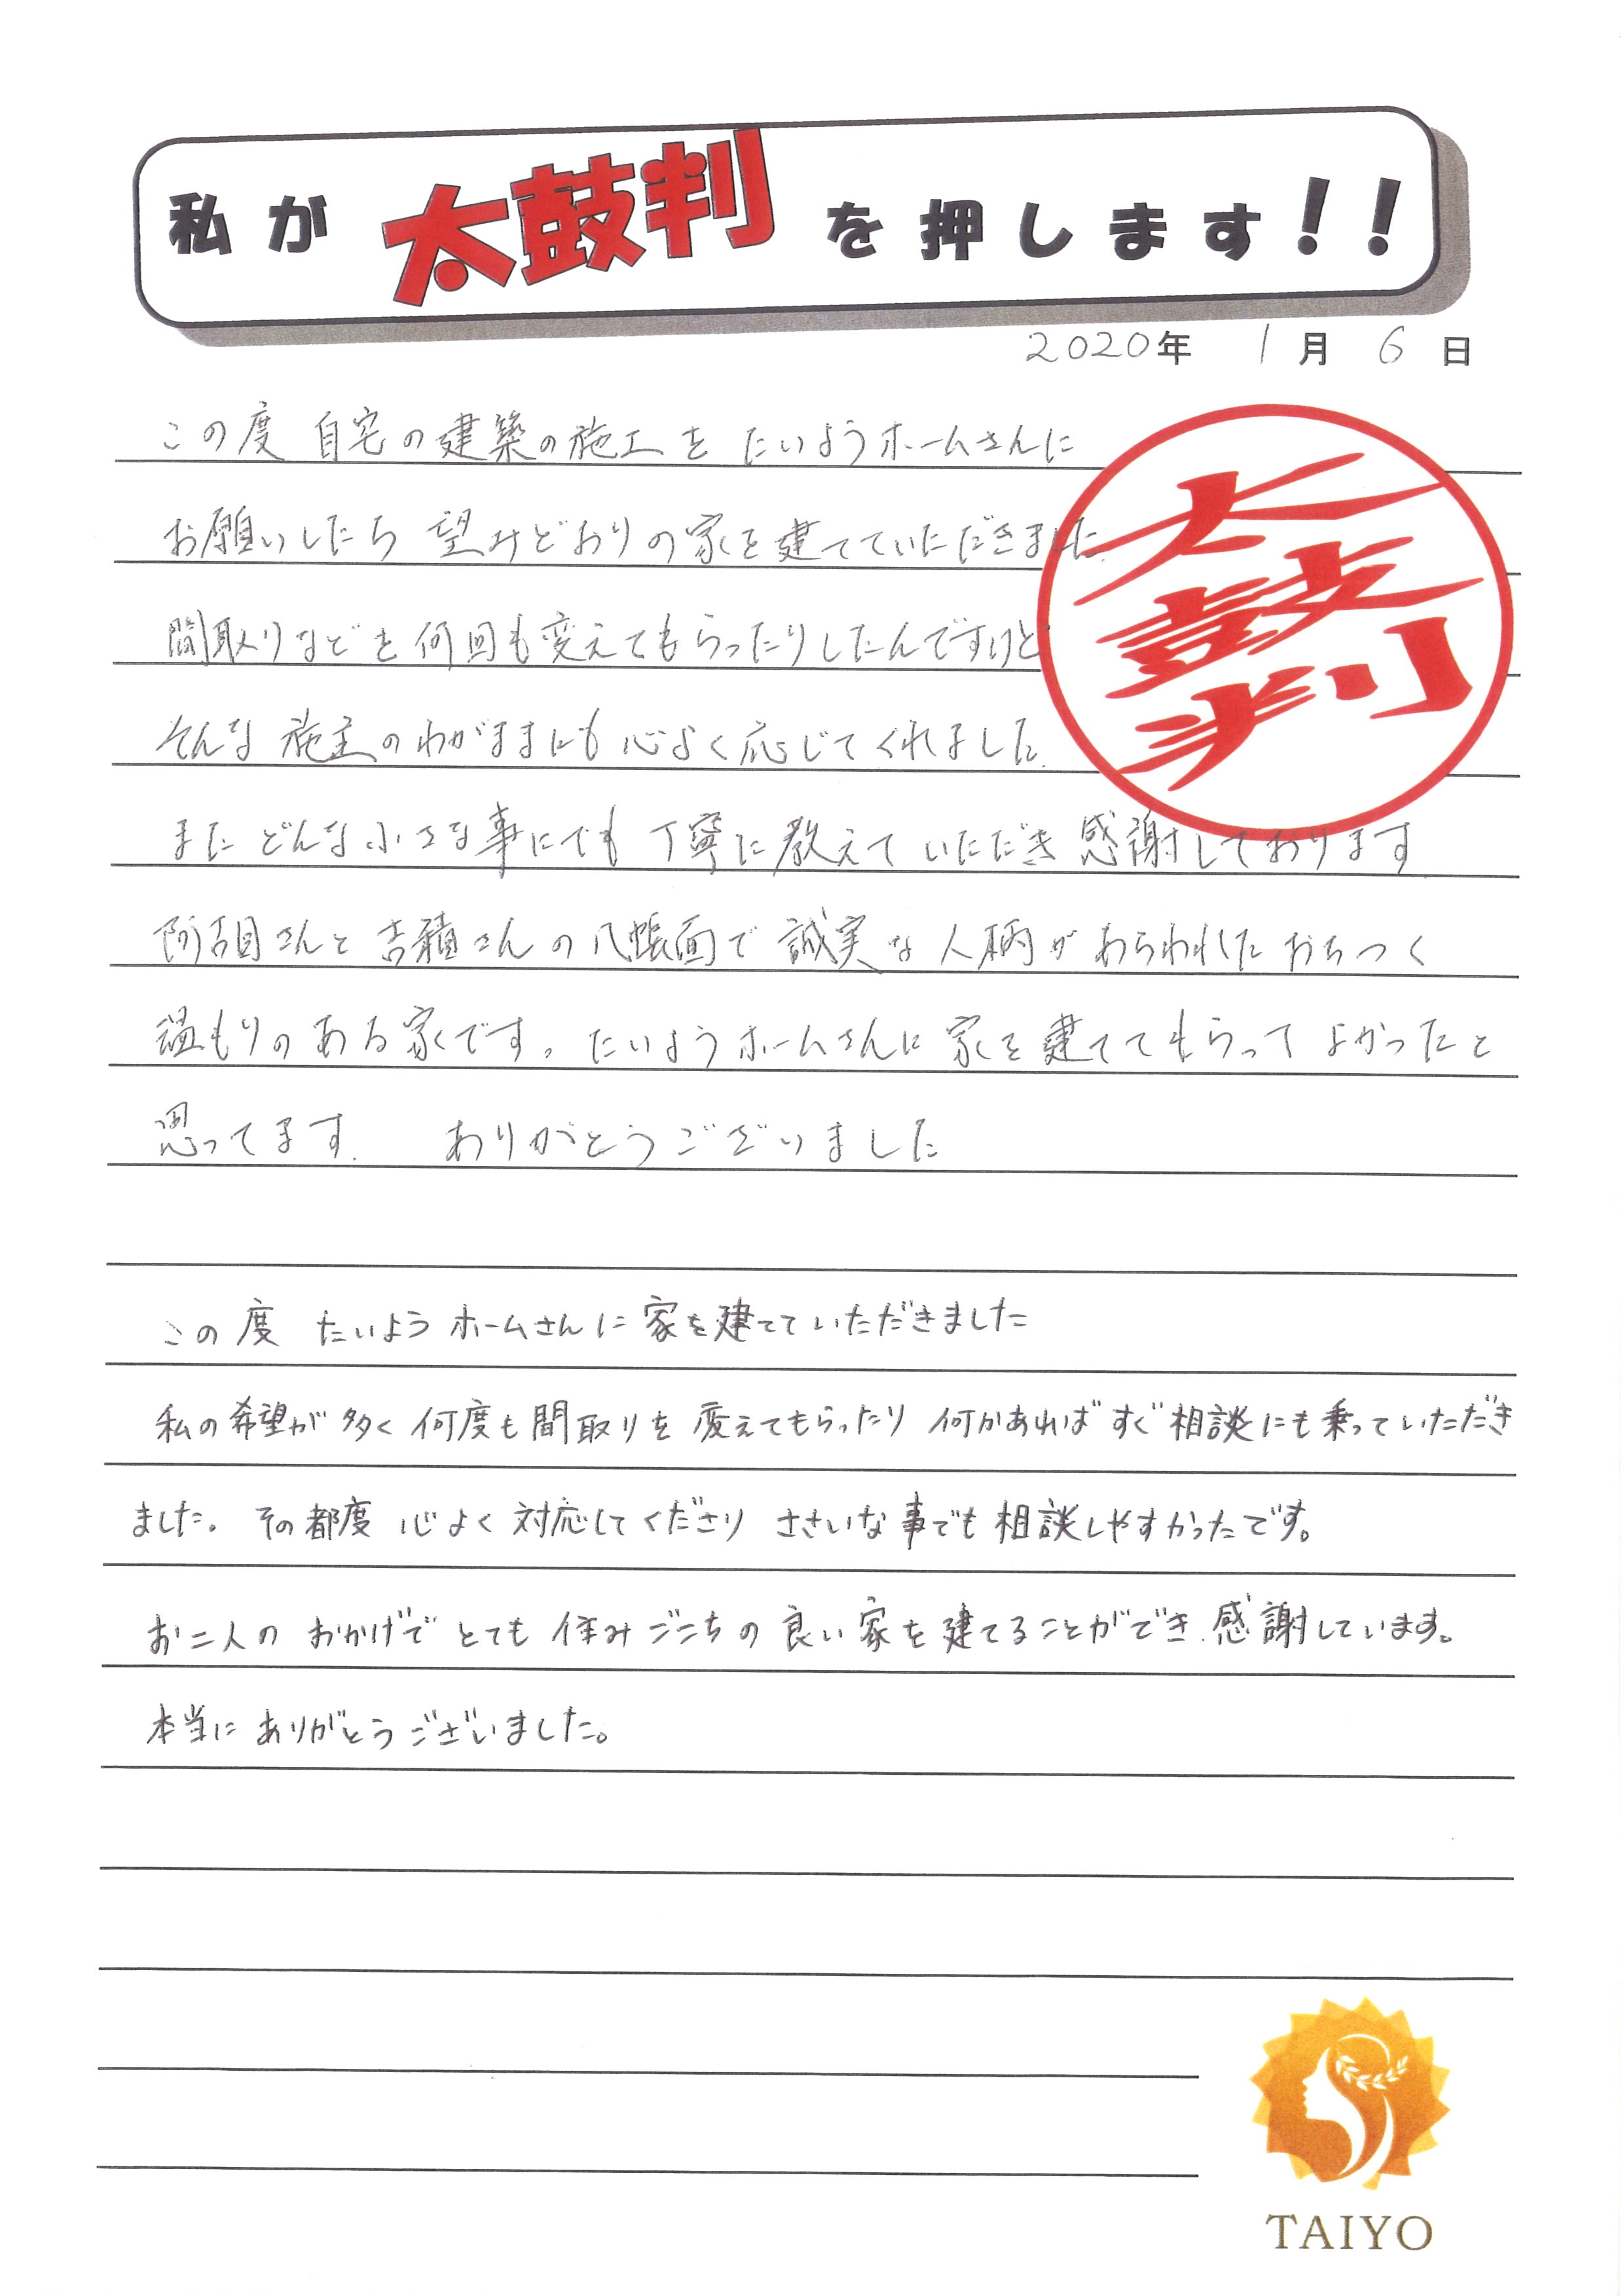 私が太鼓判を押します!!
2020年 1月 6日
この度 自宅の建築の施工を たいようホームさんに
お願いしたら 望みどおりの家を建てていただきました.
間取りなどを何回も変えてもらったりしたんですけど
そんな 施主のわがままにも 心よく応じてくれました.
また どんな小さな事にでも 丁寧に教えて いただき 感謝しております
さんと 吉積さんの几帳面で 誠実な人柄が あらわれた おちつく
温もりのある家です。たいようホームさんに 家を建ててもらって よかったと
思ってます. ありがとうございました
この度 たいようホームさんに 家を建てて いただきました
私の希望が多く 何度も間取りを 変えてもらったり 何かあれば すぐ相談にも乗っていただき
ました。その都度 心よく 対応してくださり ささいな事でも相談しやすかったです。
お二人の おかげで とても 住みごこちの良い家を建てることができ 感謝しています。
本当に ありがとうございました。
太鼓判
TAIYO